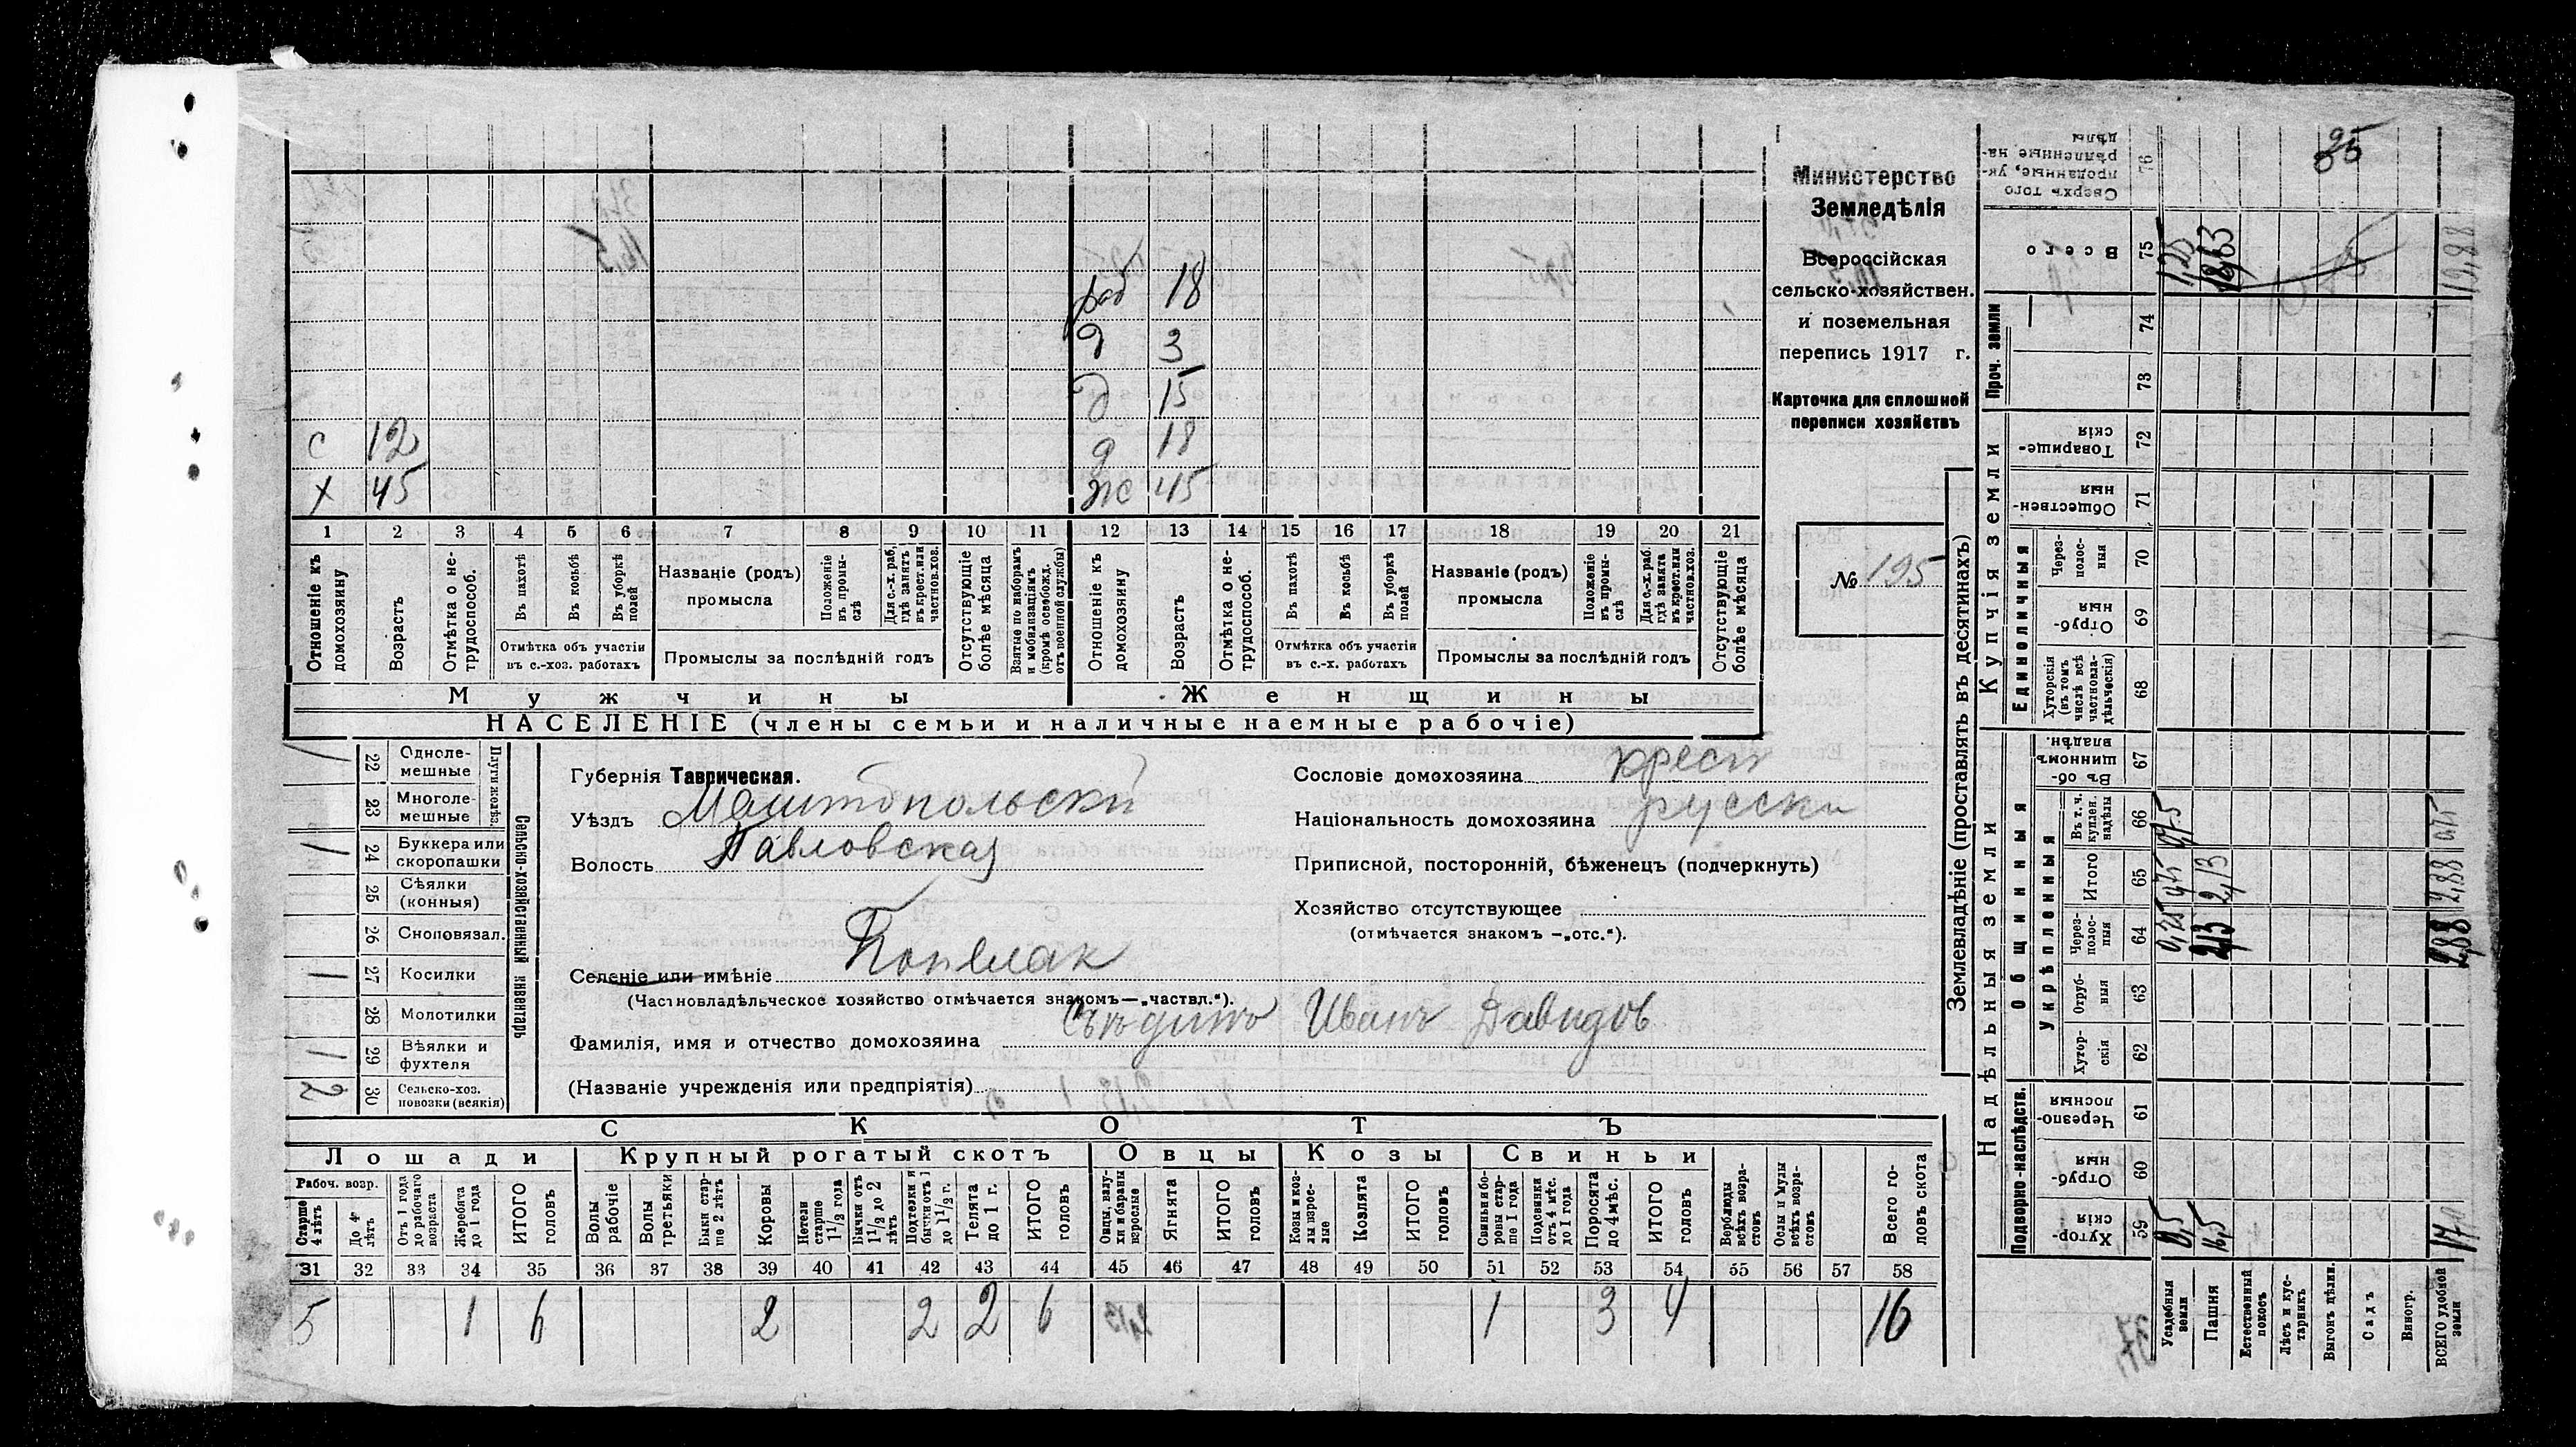 Министерство
Земледѣлія
Всероссійская
сельско-хозяйствен.
и поземельная
перепись 1917 г.
Карточка для сплошной
переписи хозяйствъ
№ 195
раб 18
д 3
д 15
с 12 д 18
х 45 ж 45
1 2 3 4 5 6 7 8 9 10 11 12 13 14 15 16 17 18 19 20 21
Отношеніе къ домохозяину
Возрастъ
Отмѣтка о не-трудоспособ.
Въ пахотѣ
Въ косьбѣ
Въ уборкѣ полей
Отмѣтка объ участіи
въ с.-хоз. работахъ
Названіе (родъ)
промысла
Положеніе въ промы-слѣ
Для с.-х. раб. гдѣ занятъ въ крест. или частнов. хоз.
Промыслы за послѣдній годъ
Отсутствующіе болѣе мѣсяца
Взятые по наборамъ и мобилизаціямъ (кромѣ освобожд. отъ военной службы)
Отношеніе къ домохозяину
Возрастъ
Отмѣтка о не-трудоспособ.
Въ пахотѣ
Въ косьбѣ
Въ уборкѣ полей
Отмѣтка объ участіи
въ с.-х. работахъ
Названіе (родъ)
промысла
Положеніе въ промы-слѣ
Для с.-х. раб. гдѣ занята въ крест. или частнов. хоз.
Промыслы за послѣдній годъ
Отсутствующіе болѣе мѣсяца
Мужчины Женщины
НАСЕЛЕНІЕ (члены семьи и наличные наемные рабочіе)
Сельско-хозяйственный инвентарь
Плуги желѣз.
1 22 Одноле-мешные
23 Многоле-мешные
1 24 Буккера или скоропашки
25 Сѣялки (конныя)
26 Сноповязал.
1 27 Косилки
28 Молотилки
1 29 Вѣялки и фухтеля
2 30 Сельско-хоз. повозки (всякія)
Губернія Таврическая.
Уѣздъ
Волость Павловская
Селеніе или имѣніе
(Частновладѣльческое хозяйство отмѣчается знакомъ—„частвл.“).
Фамилія, имя и отчество домохозяина Иванъ Давидов
(Названіе учрежденія или предпріятія)
Сословіе домохозяина крест
Національность домохозяина русски
Приписной, посторонній, бѣженецъ (подчеркнуть)
Хозяйство отсутствующее
(отмѣчается знакомъ —„отс.“).
СКОТЪ
Лошади Крупный рогатый скотъ Овцы Козы Свиньи
Рабоч. возр.
Старше 4 лѣтъ
До 4 лѣтъ
Отъ 1 года до рабочаго возраста
Жеребята до 1 года
ИТОГО головъ
Волы рабочіе
Волы третьяки
Быки стар-ше 2 лѣтъ
Коровы
Нетели старше 1 1/2 года
Бычки отъ 1 1/2 до 2 лѣтъ
Подтелки и бычки отъ 1 до 1 1/2 г.
Телята до 1 г.
ИТОГО головъ
Овцы, валу-хи и бараны взрослые
Ягнята
ИТОГО головъ
Козы и коз-лы взрос-лые
Козлята
ИТОГО головъ
Свиньи и бо-ровы стар-ше 1 года
Подсвинки отъ 4 мѣс. до 1 года
Поросята до 4 мѣс.
ИТОГО головъ
Верблюды всѣхъ возра-стовъ
Ослы и мулы всѣхъ возра-стовъ
Всего го-ловъ скота
31 32 33 34 35 36 37 38 39 40 41 42 43 44 45 46 47 48 49 50 51 52 53 54 55 56 57 58
5 1 6 2 2 2 6 1 3 4 16
Землевладѣніе (проставлять въ десятинахъ)
Надѣльныя земли Купчія земли Проч. земли
Подворно-наслѣдств.
Общинныя
Укрѣпленныя
Единоличныя
Хутор-скія 59
Отруб-ныя 60
Черезпо-лосныя 61
Хутор-скія 62
Отруб-ныя 63
Через-полос-ныя 64
Итого 65
Въ т. ч. куплен. надѣлы 66
Въ об-щинномъ владѣн. 67
Хуторскія (въ томъ числѣ всѣ частновла-дѣльческія) 68
Отруб-ныя 69
Через-полос-ныя 70
Обществен-ныя 71
Товарище-скія 72
73
74
Всего 75
Сверхъ того проданные, ук-рѣпленные на-дѣлы 76
Усадебныя земли
Пашня 16,5 2,13 2,13 18,63
Естественный покосъ
Лѣсъ и ку-старникъ
Выгонъ дѣлин.
Садъ
Виногр.
ВСЕГО удобной земли 2,88 2,88 19,88